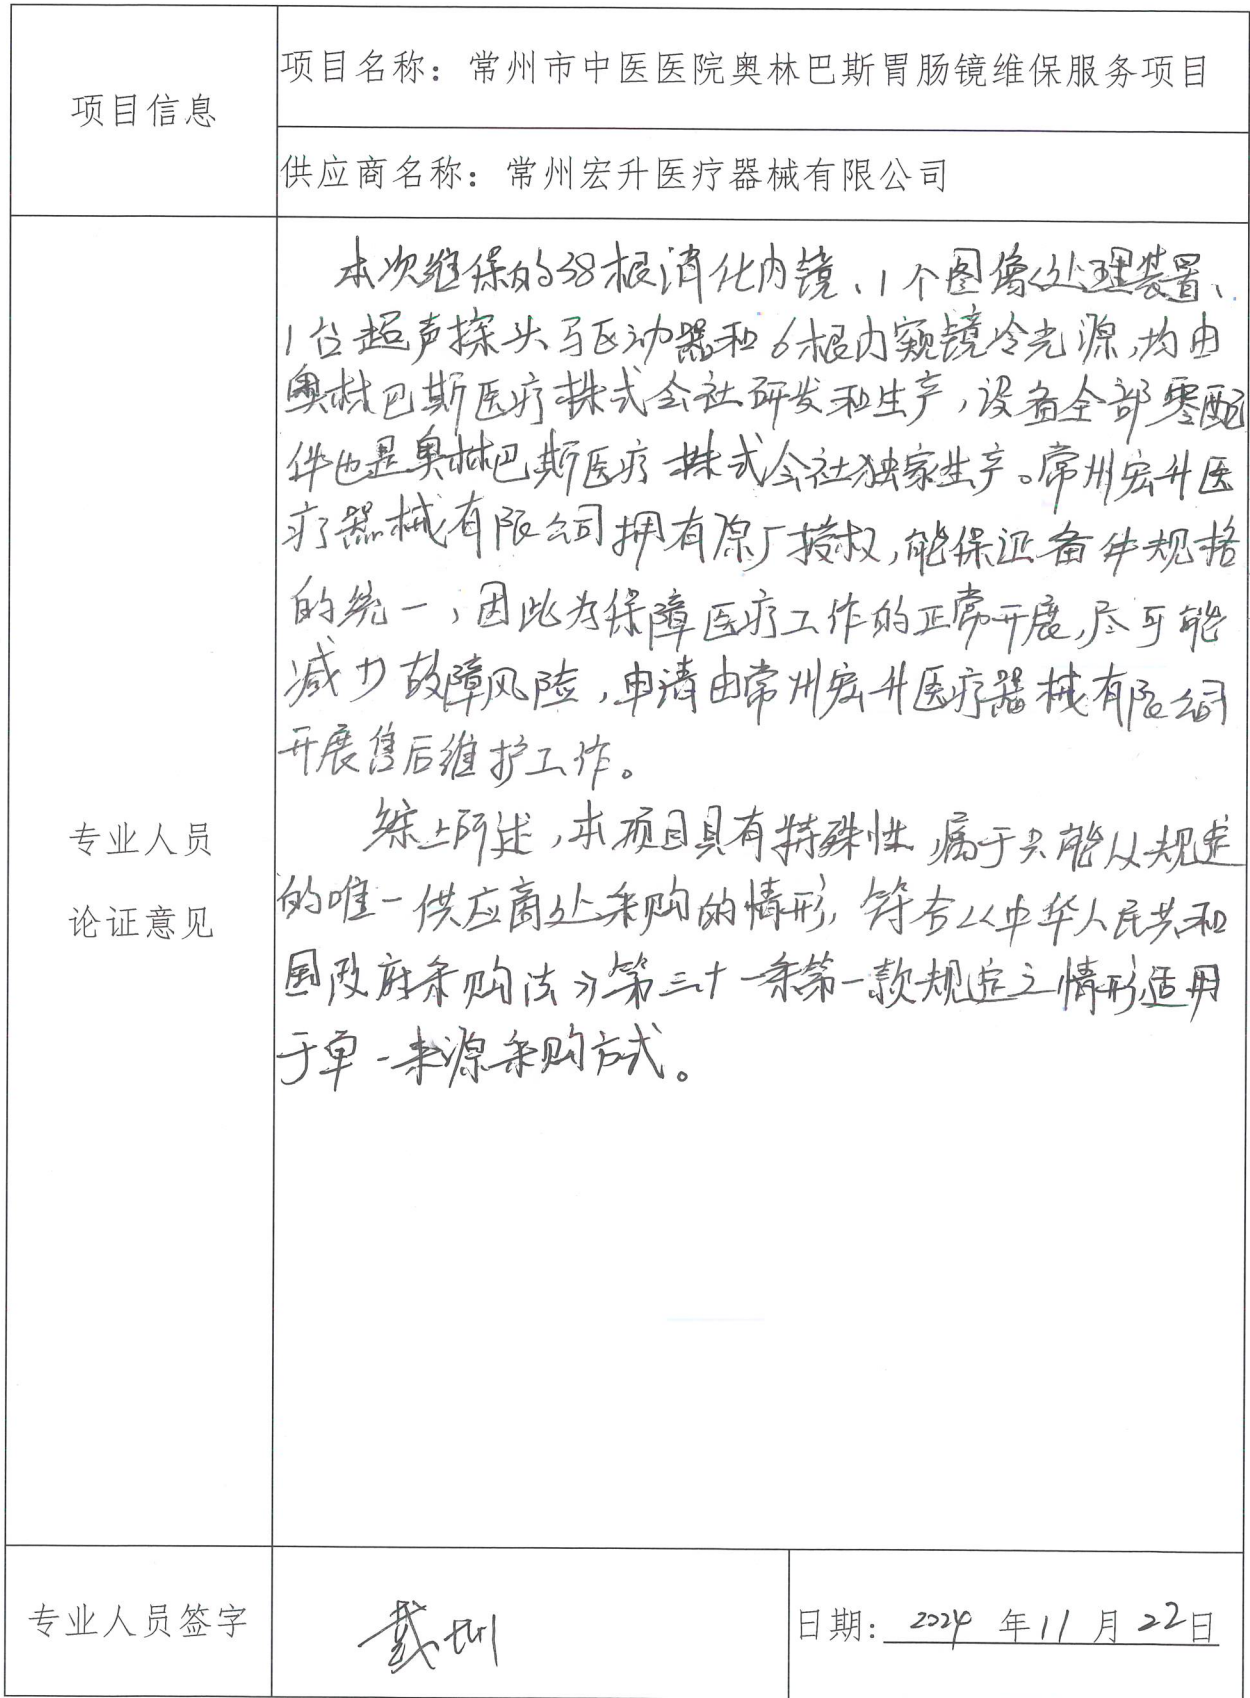 项目信息
项目名称：常州市中医医院奥林巴斯胃肠镜维保服务项目
供应商名称：常州宏升医疗器械有限公司
专业人员
论证意见
本次维保的38根消化内镜、1个图像处理装置、
1台超声探头驱动器和6根内窥镜冷光源,均由
奥林巴斯医疗株式会社研发和生产,设备全部零配
件也是奥林巴斯医疗株式会社独家生产。常州宏升医
疗器械有限公司拥有原厂授权,能保证备件规格
的统一,因此为保障医疗工作的正常开展,尽可能
减少故障风险,申请由常州宏升医疗器械有限公司
开展售后维护工作。
综上所述,本项目具有特殊性,属于只能从规定
的唯一供应商处采购的情形,符合《中华人民共和
国政府采购法》第三十一条第一款规定之情形,适用
于单一来源采购方式。
专业人员签字
戴
日期：2024年11月22日